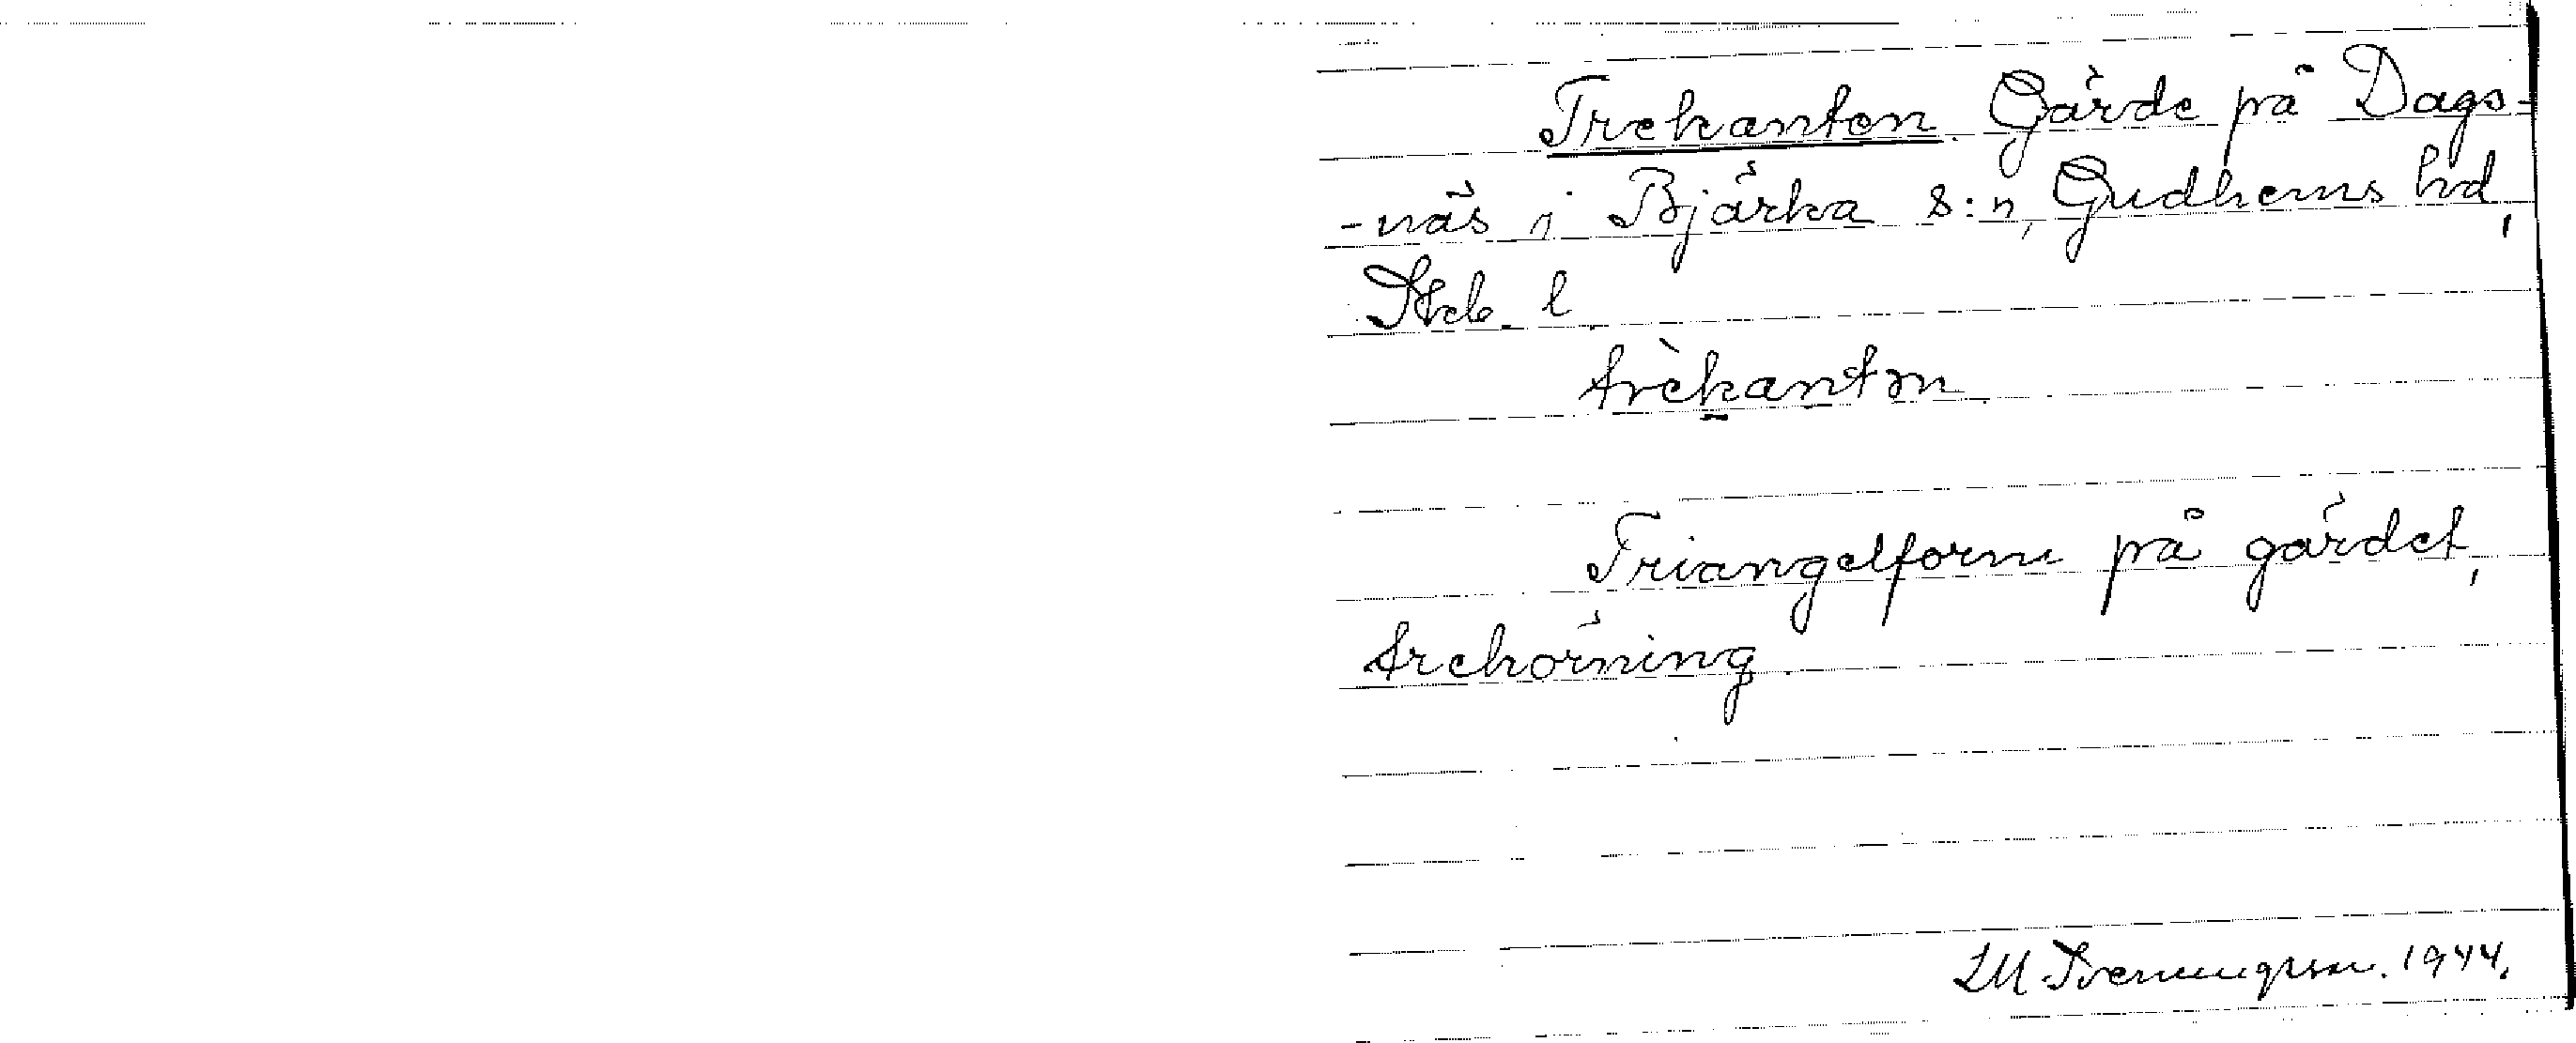 Trekanten. Gärde på Dags-
-näs i Bjärka s:n, Gudhems hd,
Skab. l.
trèkantən
Triangelform på gärdet,
trehörning.
1944.